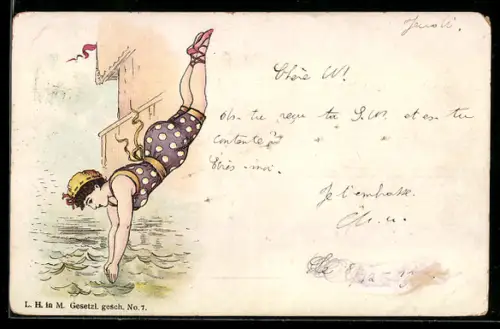 Jeudi.
Chère W!
As-tu reçu ta S.W. et es-tu
contente?
Écris-moi.
Je t'embrasse
L. H. in M. Gesetzl. gesch. No. 7.